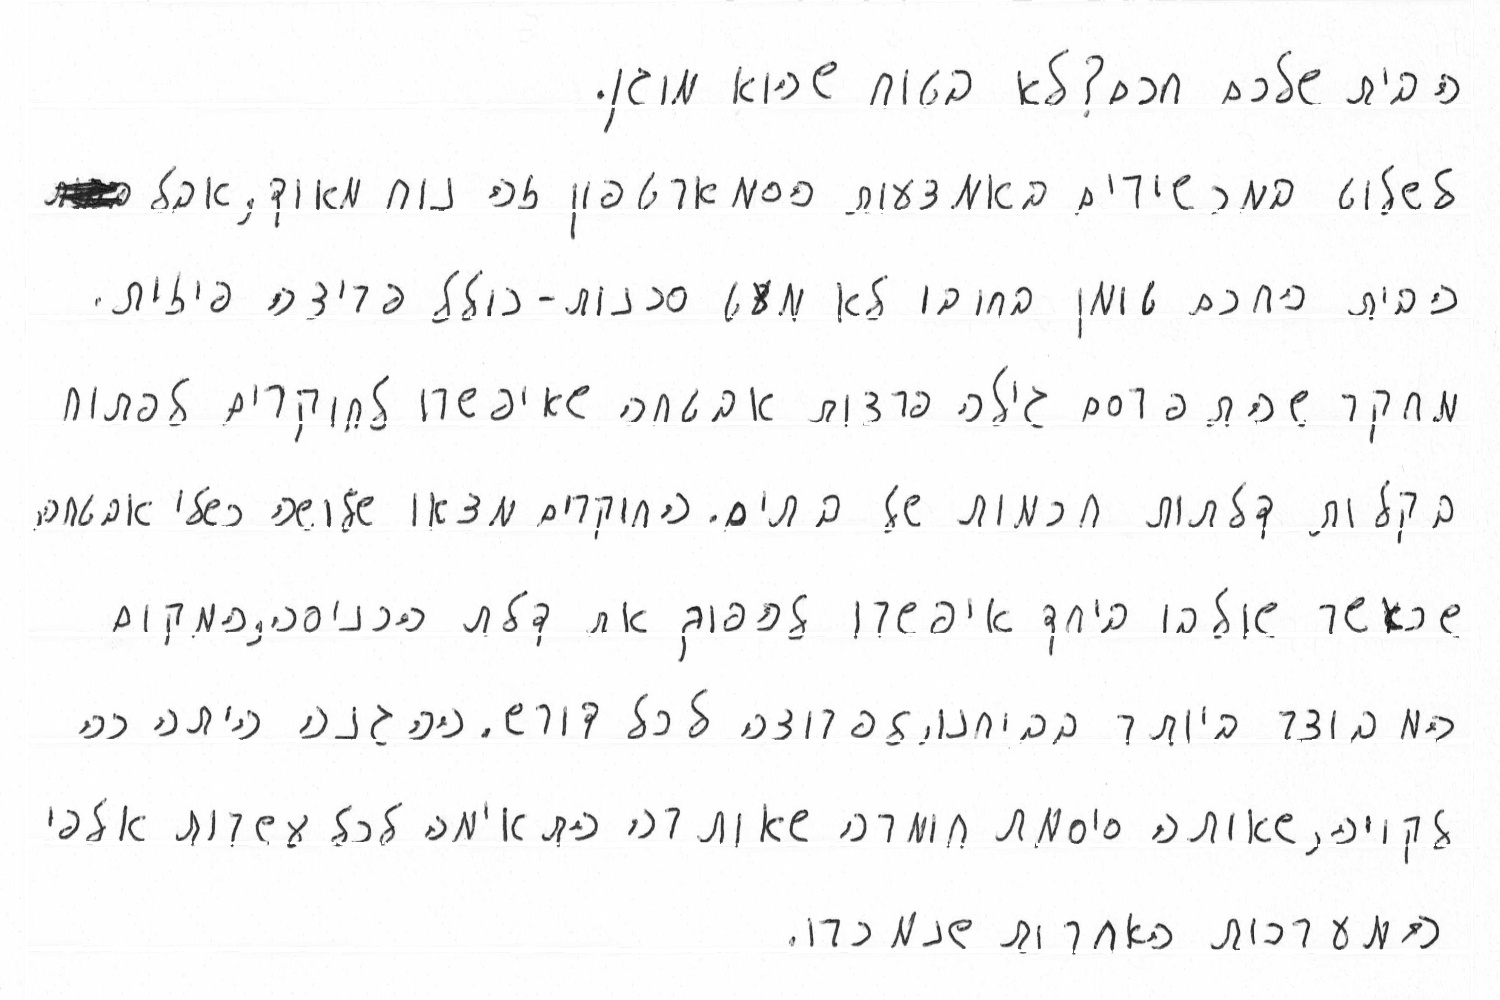 הבית שלכם חכם? לא בטוח שהוא מוגן.
לשלוט במכשירים באמצעות הסמארטפון זה נוח מאוד, אבל
הבית החכם טומן בחובו לא מעט סכנות - כולל פריצה פיזית.
מחקר שהתפרסם גילה פרצות אבטחה שאיפשרו לחוקרים לפתוח
בקלות דלתות חכמות של בתים. החוקרים מצאו שלושה כשלי אבטחה,
שכאשר שולבו ביחד איפשרו להפוך את דלת הכניסה, המקום
המבוצר ביותר בביתנו, לפרוצה לכל דורש. ההגנה היתה כה
לקויה, שאותה סיסמת חומרה שאותרה התאימה לכל עשרות אלפי
המערכות האחרות שנמכרו.